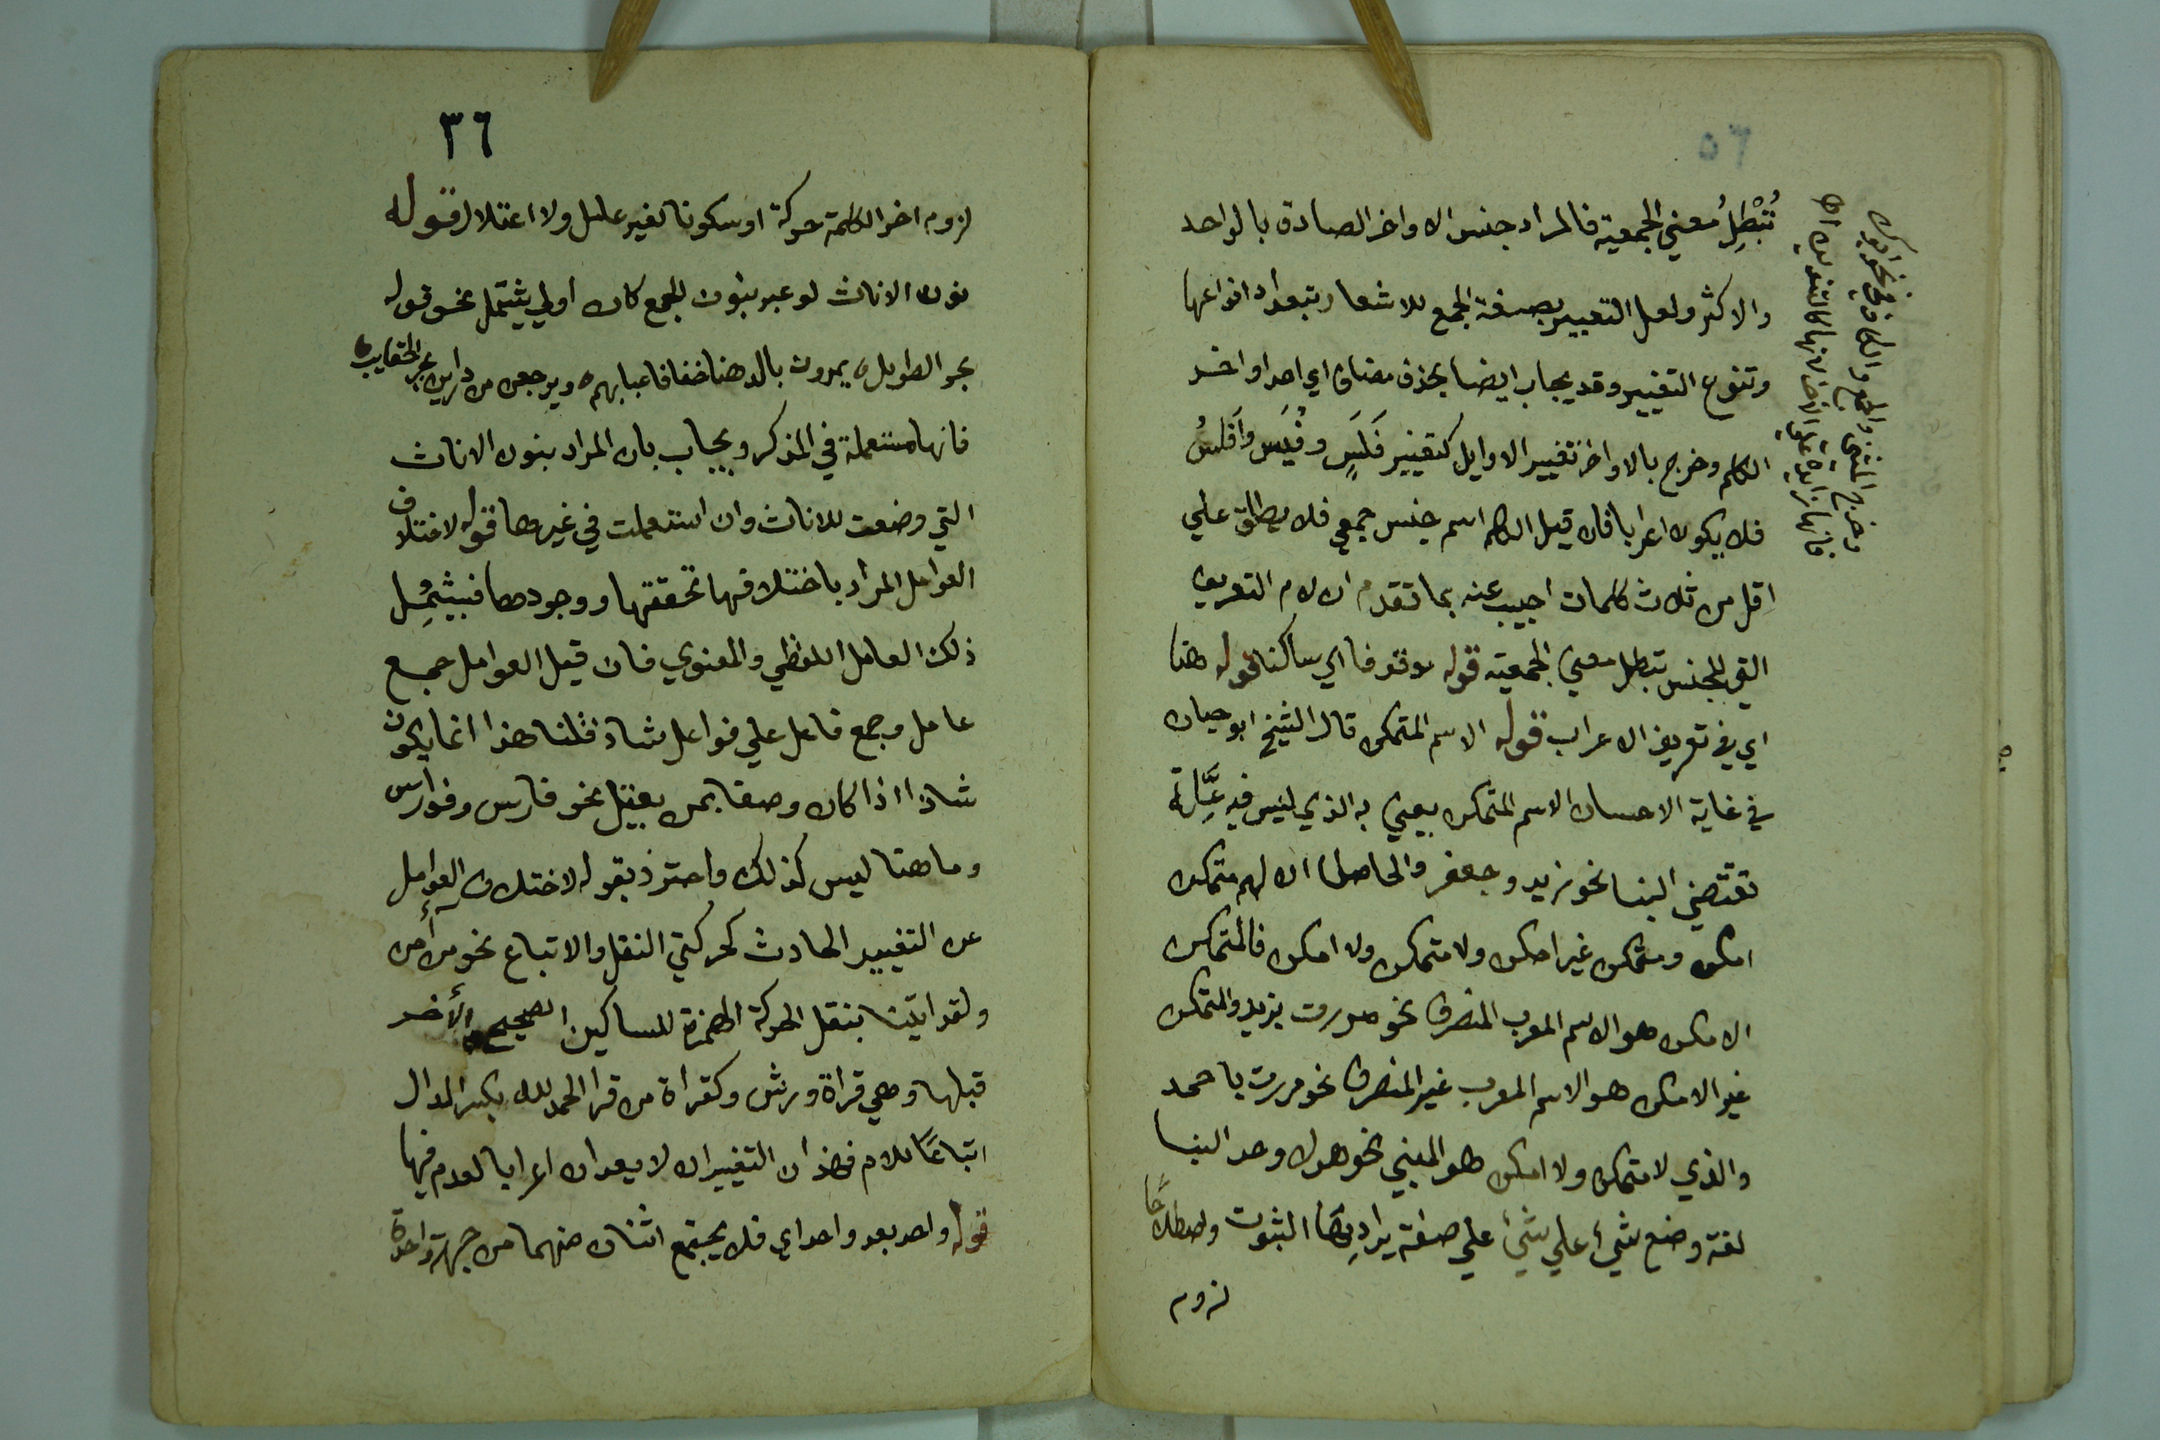 ٥٦
تُبْطِلُ معني الجمعية فالمراد جنس الاواخر الصادق بالواحد
والاكثر ولعل التعبير بصيغة الجمع للاشعار بتعداد انواعها
وتنوع التغيير وقد يجاب ايضا بحذف مضاف اي احد اواخر
الكلم وخرج بالاواخر تغيير الاوايل كتغيير فَلَسٍ وفُلَيس وأَفلُسُ
فلا يكون اعرابا فان قيل الكلم اسم جنس جمعي فلا يطلق علي
اقل من ثلاث كلمات اجيب عنه بما تقدم ان لام التعريف
التي للجنس تبطل معني الجمعية قوله موقوفا اي ساكنا قوله هنا
اي في تعريف الاعراب قوله الاسم المتمكن قال الشيخ ابو حيان
في غاية الاحسان الاسم المتمكن يعني به الذي ليس فيه عِلَّة
تقتضي البنا نحو زيد وجعفر والحاصل ان لهم متمكن
امكن ومتمكن غير امكن ولا متمكن ولا امكن فالمتمكن
الامكن هو الاسم المعرب المنصرف نحو مررت بزيد والمتمكن
غير الامكن هو الاسم المعرب غير المنصرف نحو مررت باحمد
والذي لا متمكن ولا امكن هو المبني نحو هولا وحد البنا
لغة وضع شيء علي شيء علي صفة يراد بها الثبوت واصطلاحًا
لزوم
وخرج المثني والجمع والكاف في نحو ابوك
فانها زايدة علي الآخر لانها كالتنوين
٣٦
لزوم اخر الكلمة حركة او سكونا لغير عامل ولا اعتلال قوله
نون الاناث لو عبر بنون الجمع كان اولي ليشتمل نحو قوله
بحر الطويل يمرون بالدهنا خفافا عيابهم ويرجعن من دارين بجر الحقايب
فانها مستعملة في المذكر ويجاب بان المراد بنون الاناث
التي وضعت للاناث وان استعملت في غيرها قوله لاختلاف
العوامل المراد باختلافها تحققها ووجودها فيشمُِل
ذلك العامل اللفظي والمعنوي فان قيل العوامل جمع
عامل وجمع فاعل علي فواعل شاذ قلنا هذا انما يكون
شاذا اذا كان وصفا لمن يعقل نحو فارس وفوارس
وما هنا ليس كذلك واحترز بقوله لاختلاف العوامل
عن التغيير الحادث كحركتي النقل والاتباع نحو من أمن
ولقد اتينا بنقل الحركة الهمزة للساكن الصحيح الأخر
قبلها وهي قراة ورش وكقراة من قرا الحمد لله بكسر الدال
اتباعًا للام فهذان التغييران لا يعدان اعرابا لعدم فيها
قوله واحد بعد واحد اي فلا يجتمع اثنان منهما من جهة واحدة